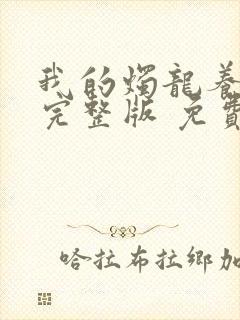 我的燭龍養
完整版 免費
哈拉布拉鄉加